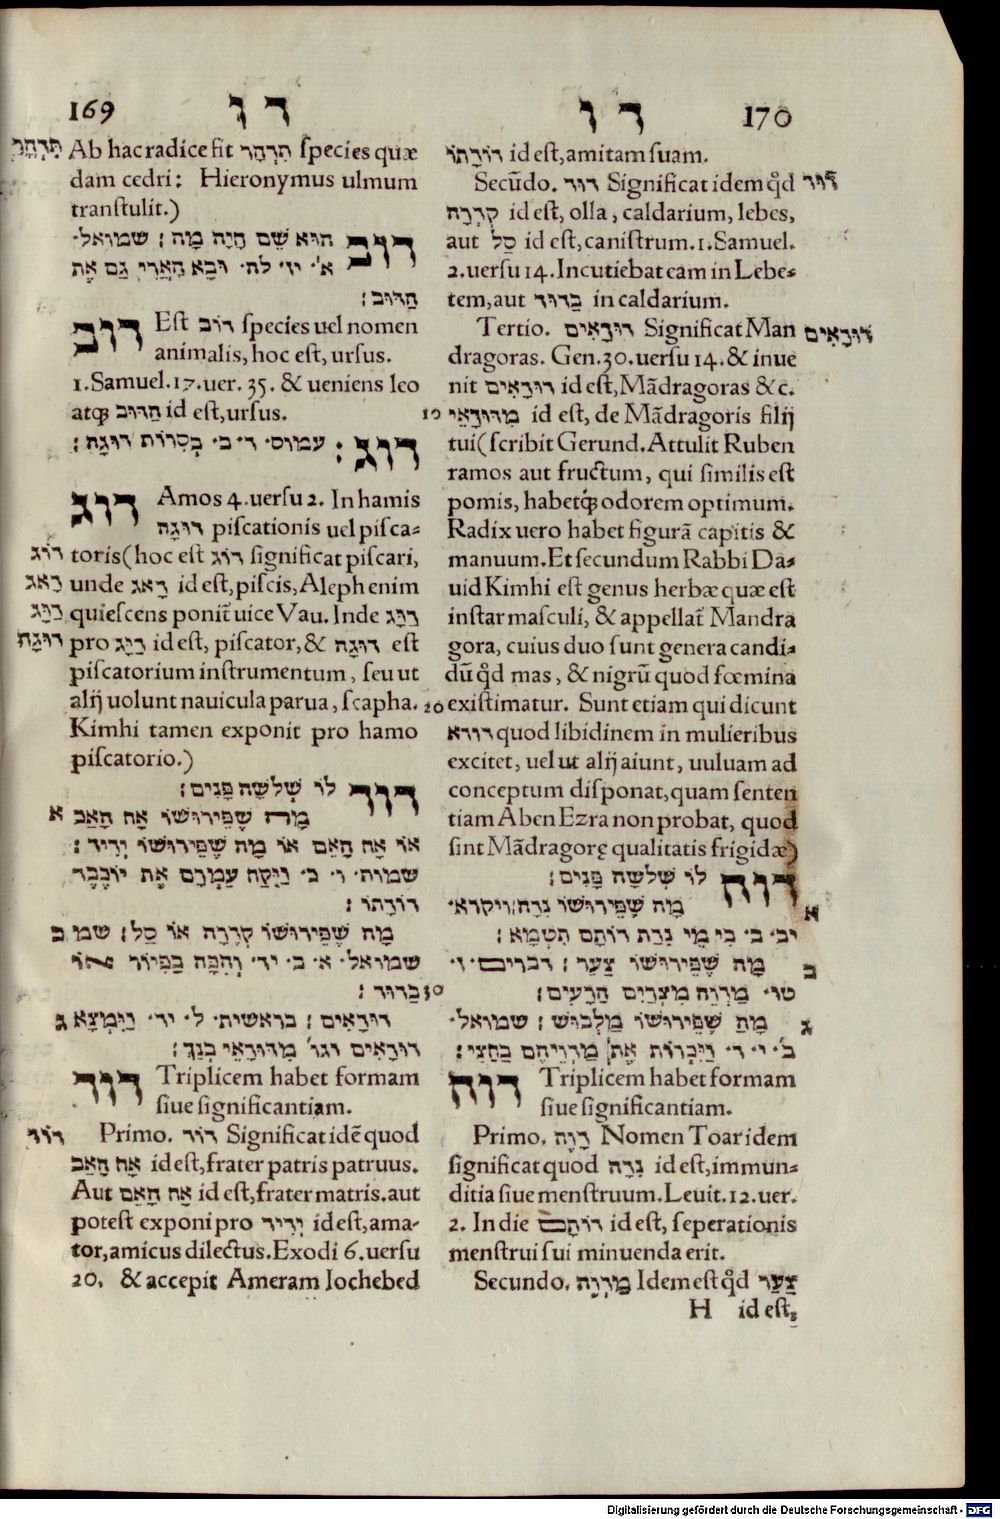 169 דו
תִּדְהָר Ab hac radice fit תִּדְהָר species quæ
dam cedri: Hieronymus ulmum
transtulit.)
דוב הוא שֵׁם חַיָּה מָה: שמואל·
א׳· יז· לה· וּבָא הָאֲרִי גַּם אֶת
הַדּוּב:
דוב Est דּוֹב species uel nomen
animalis, hoc est, ursus.
1. Samuel. 17. uer. 35. & ueniens leo
atq; הַדּוּב id est, ursus.
דוג: עמוס· ד· ב· בְּסִרוֹת דוּגָה:
דוג Amos 4. uersu 2. In hamis
דּוּגָה piscationis uel pisca-
דּוֹג toris (hoc est דּוֹג significat piscari,
דָאג unde דָאג id est, piscis, Aleph enim
דַּיָּג quiescens ponit̃ uice Vau. Inde דַּיָּג
דּוּגָה pro דַּיָּג id est, piscator, & דּוּגָה est
piscatorium instrumentum, seu ut
alij uolunt nauicula parua, scapha.
Kimhi tamen exponit pro hamo
piscatorio.)
דוד לוֹ שְׁלֹשָׁה פָּנִים:
א מָה שֶׁפֵּירוּשׁוֹ אָח הָאַב
אוֹ אָח הָאֵם אוֹ מַה שֶׁפֵּירוּשׁוֹ יְדִיד:
שמות· ו· כ· וַיִּקַּח עַמְרָם אֶת יוֹכֶבֶד
דּוֹדָתוֹ:
ב מָה שֶׁפֵּירוּשׁוֹ קְדֵרָה אוֹ סַל: שמו
שמואל· א· ב· יד· וְהִכָּה בַכִּיוֹר אוֹ
בַדּוּד:
ג דּוּדָאִים: בראשית· ל· יד· וַיִּמְצָא
דוּדָאִים וגו׳ מִדּוּדָאֵי בְנֵךְ:
דוד Triplicem habet formam
siue significantiam.
דּוֹד Primo. דּוֹד Significat idẽ quod
אָח הָאַב id est, frater patris patruus.
Aut אָח הָאֵם id est, frater matris. aut
potest exponi pro יְדִיד id est, ama-
tor, amicus dilectus. Exodi 6. uersu
20. & accepit Ameram Iochebed
דו 170
דּוֹדָתוֹ id est, amitam suam.
Secũdo. דּוּד Significat idem qd̃ דּוּד
קְדֵרָה id est, olla, caldarium, lebes,
aut סַל id est, canistrum. 1. Samuel.
2. uersu 14. Incutiebat eam in Lebe-
tem, aut בַדּוּד in caldarium.
Tertio. דּוּדָאִים Significat Man דּוּדָאִים
dragoras. Gen. 30. uersu 14. & inue
nit דּוּדָאִים id est, Mãdragoras & c.
10 מִדּוּדָאֵי id est, de Mãdragoris filij
tui (scribit Gerund. Attulit Ruben
ramos aut fructum, qui similis est
pomis, habetq; odorem optimum.
Radix uero habet figurã capitis &
manuum. Et secundum Rabbi Da-
uid Kimhi est genus herbæ quæ est
instar masculi, & appellat̃ Mandra
gora, cuius duo sunt genera candi-
dũ qd̃ mas, & nigrũ quod fœmina
20 existimatur. Sunt etiam qui dicunt
דודא quod libidinem in mulieribus
excitet, uel ut alij aiunt, uuluam ad
conceptum disponat, quam senten
tiam Aben Ezra non probat, quod
sint Mãdragorę qualitatis frigidæ)
דוה לוֹ שְׁלֹשָׁה פָּנִים:
א מָה שֶׁפֵּירוּשׁוֹ נִדָּה: ויקרא·
יב· ב· כִּימֵי נִדַּת דּוֹתָם תִּטְמָא:
ב מָה שֶׁפֵּירוּשׁוֹ צַעַר: דברים· ז·
טו· מַדְוֵה מִצְרַיִם הָרָעִים:
30
ג מָה שֶׁפֵּירוּשׁוֹ מַלְבּוּשׁ: שמואל·
ב׳· י· ד· וַיִּכְרוֹת אֶת מַדְוֵיהֶם בַּחֲצִי:
דוה Triplicem habet formam
siue significantiam.
Primo. דָּוֶה Nomen Toar idem
significat quod נִדָּה id est, immun-
ditia siue menstruum. Leuit. 12. uer.
2. In die דּוֹתָם id est, seperationis
menstrui sui minuenda erit.
Secundo. מַדְוֶה Idem est qd̃ צַעַר
H id est,
Digitalisierung gefördert durch die Deutsche Forschungsgemeinschaft - DFG